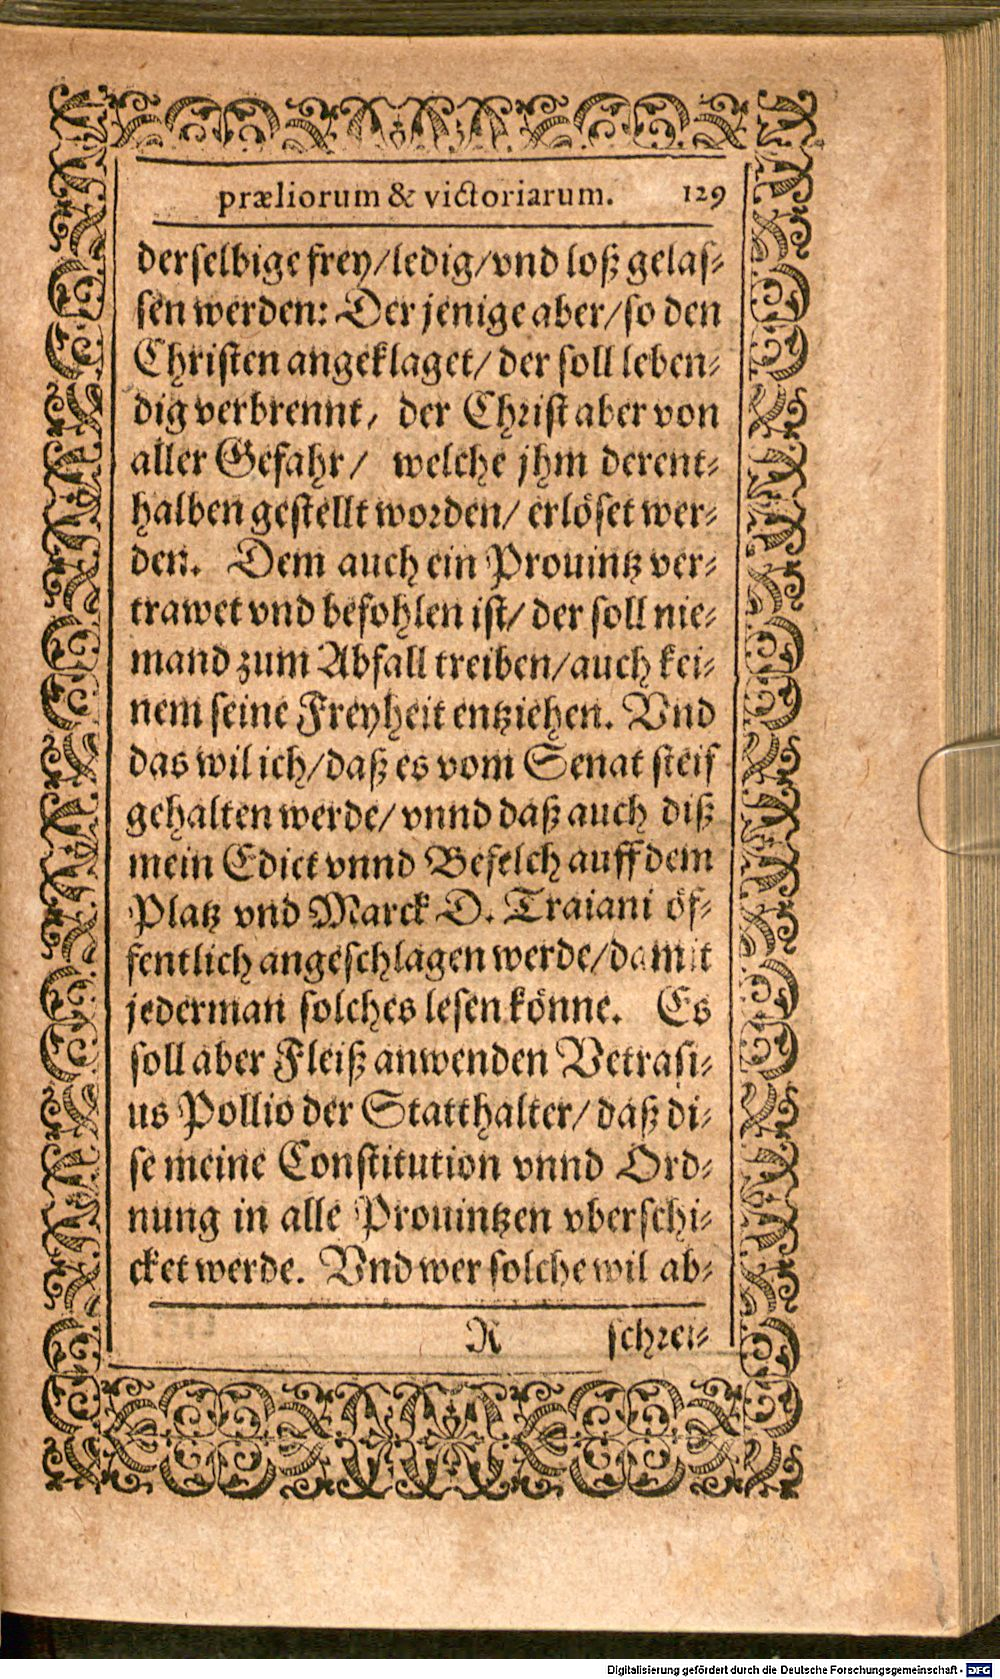 præliorum & victoriarum. 129
derselbige frey/ledig/vnd loß gelas-
sen werden: Der jenige aber/so den
Christen angeklaget/ der soll leben-
dig verbrennt, der Christ aber von
aller Gefahr/ welche jhm derent-
halben gestellt worden/ erlöset wer-
den. Dem auch ein Prouintz ver-
trawet vnd befohlen ist/ der soll nie-
mand zum Abfall treiben/auch kei-
nem seine Freyheit entziehen. Vnd
das wil ich/daß es vom Senat steif
gehalten werde/ vnnd daß auch diß
mein Edict vnnd Befelch auff dem
Platz vnd Marck D. Traiani öf-
fentlich angeschlagen werde/damit
jederman solches lesen könne. Es
soll aber Fleiß anwenden Vetrasi-
us Pollio der Statthalter/ daß di-
se meine Constitution vnnd Ord-
nung in alle Prouintzen vberschi-
cket werde. Vnd wer solche wil ab-
R schrei-
Digitalisierung gefördert durch die Deutsche Forschungsgemeinschaft - DFG